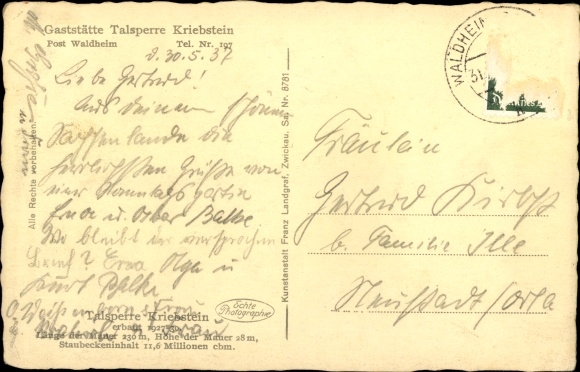 Gaststätte Talsperre Kriebstein
Post Waldheim Tel. Nr. 197
d. 30.5.37
Liebe Gertrud!
Aus deinem schönen
Sachsenlande die
herzlichsten Grüße von
einer Sonntagspartie
Erna u. Oskar Balke
Wo bleibt der versprochene
Brief? Erna Olga u
Kurt Balke
Talsperre Kriebstein
erbaut 1927-30
Länge der Mauer 230 m, Höhe der Mauer 28 m,
Staubeckeninhalt 11,6 Millionen cbm.
Alle Rechte vorbehalten
Echte
Photographie
Kunstanstalt Franz Landgraf, Zwickau, Sa. Nr. 8781
WALDHEIM
31.
Fräulein
Gertrud
b. Familie Ille
Neustadt/Orla